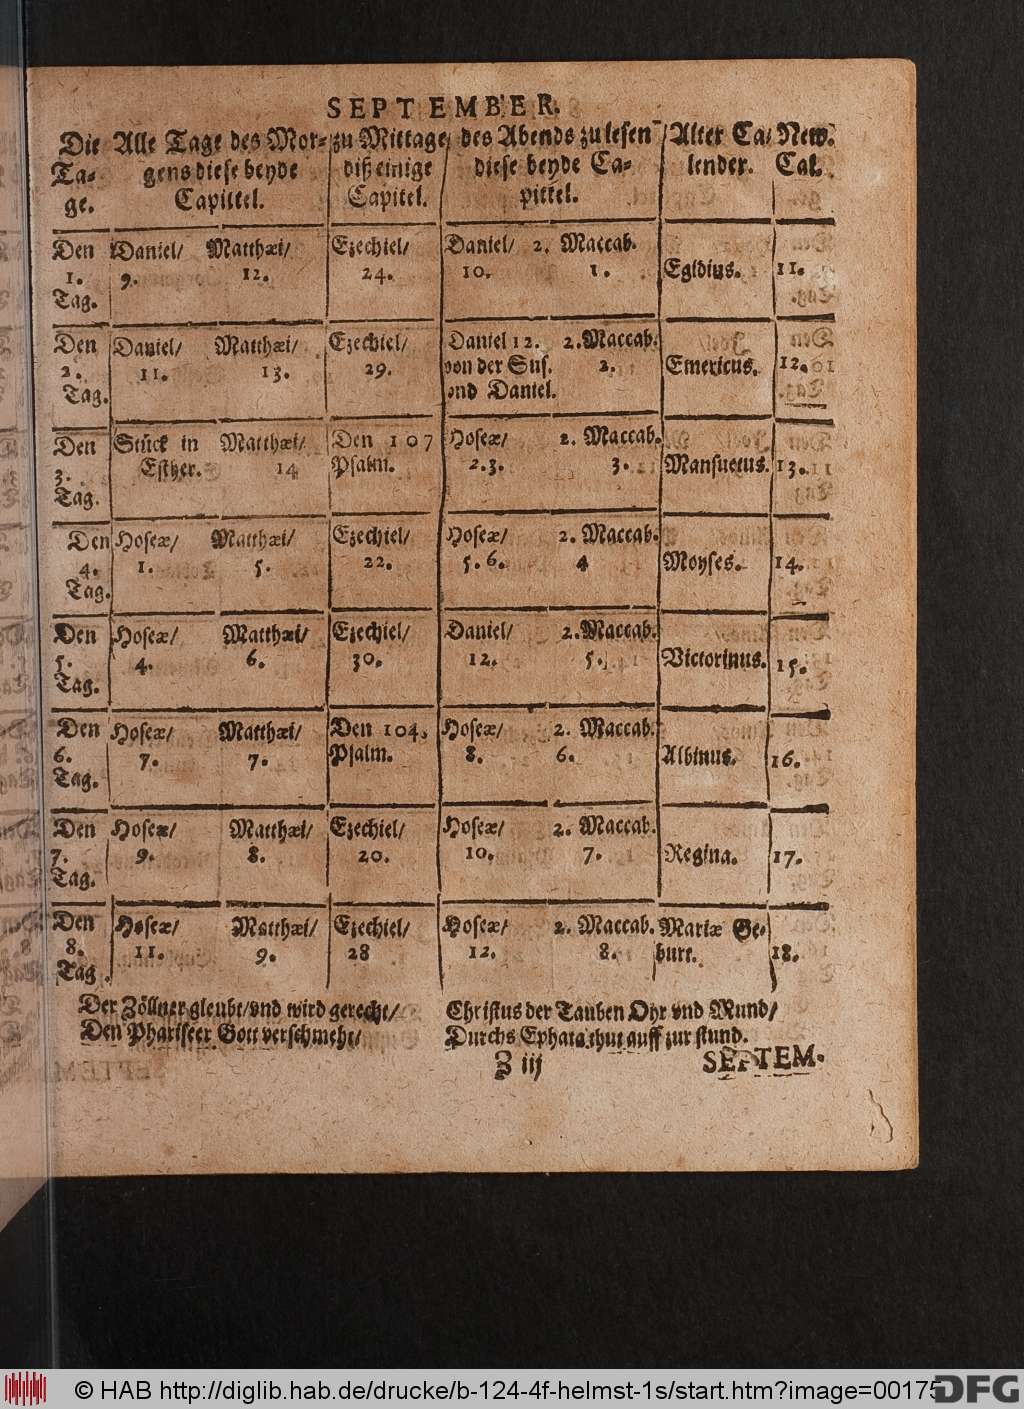 SEPTEMBER.
Die Alle Tage des Mor- zu Mittage des Abends zu lesen Alter Ca/ New.
Ta- gens diese beyde diß einige diese beyde Ca- lender. Cal.
ge. Capittel. Capitel. pittel.
Den Daniel/ Matthæi/ Ezechiel/ Daniel/ 2. Maccab.
1. 9. 12. 24. 10. 1. Egidius. 11.
Tag.
Den Daniel/ Matthæi/ Ezechiel/ Daniel 12. 2. Maccab.
2. 11. 13. 29. von der Sus. 2. Emericus. 12.
Tag. vnd Daniel.
Den Stück in Matthæi/ Den 107 Hoseæ/ 2. Maccab.
3. Esther. 14 Psalm. 2.3. 3. Mansuetus. 13.
Tag.
Den Hoseæ/ Matthæi/ Ezechiel/ Hoseæ/ 2. Maccab.
4. 1. 5. 22. 5. 6. 4 Moyses. 14.
Tag.
Den Hoseæ/ Matthæi/ Ezechiel/ Daniel/ 2. Maccab.
5. 4. 6. 30. 12. 5. Victorinus. 15.
Tag.
Den Hoseæ/ Matthæi/ Den 104. Hoseæ/ 2. Maccab.
6. 7. 7. Psalm. 8. 6. Albinus. 16.
Tag.
Den Hoseæ/ Matthæi/ Ezechiel/ Hoseæ/ 2. Maccab.
7. 9. 8. 20. 10. 7. Regina. 17.
Tag.
Den Hoseæ/ Matthæi/ Ezechiel/ Hoseæ/ 2. Maccab. Mariæ Ge-
8. 11. 9. 28 12. 8. burt. 18.
Tag
Der Zöllner gleubt/vnd wird gerecht/ Christus der Tauben Ohr vnd Mund/
Den Phariseer Gott verschmeht/ Durchs Ephata thut auff zur stund.
Z iij SEPTEM-
© HAB http://diglib.hab.de/drucke/b-124-4f-helmst-1s/start.htm?image=00175 DFG